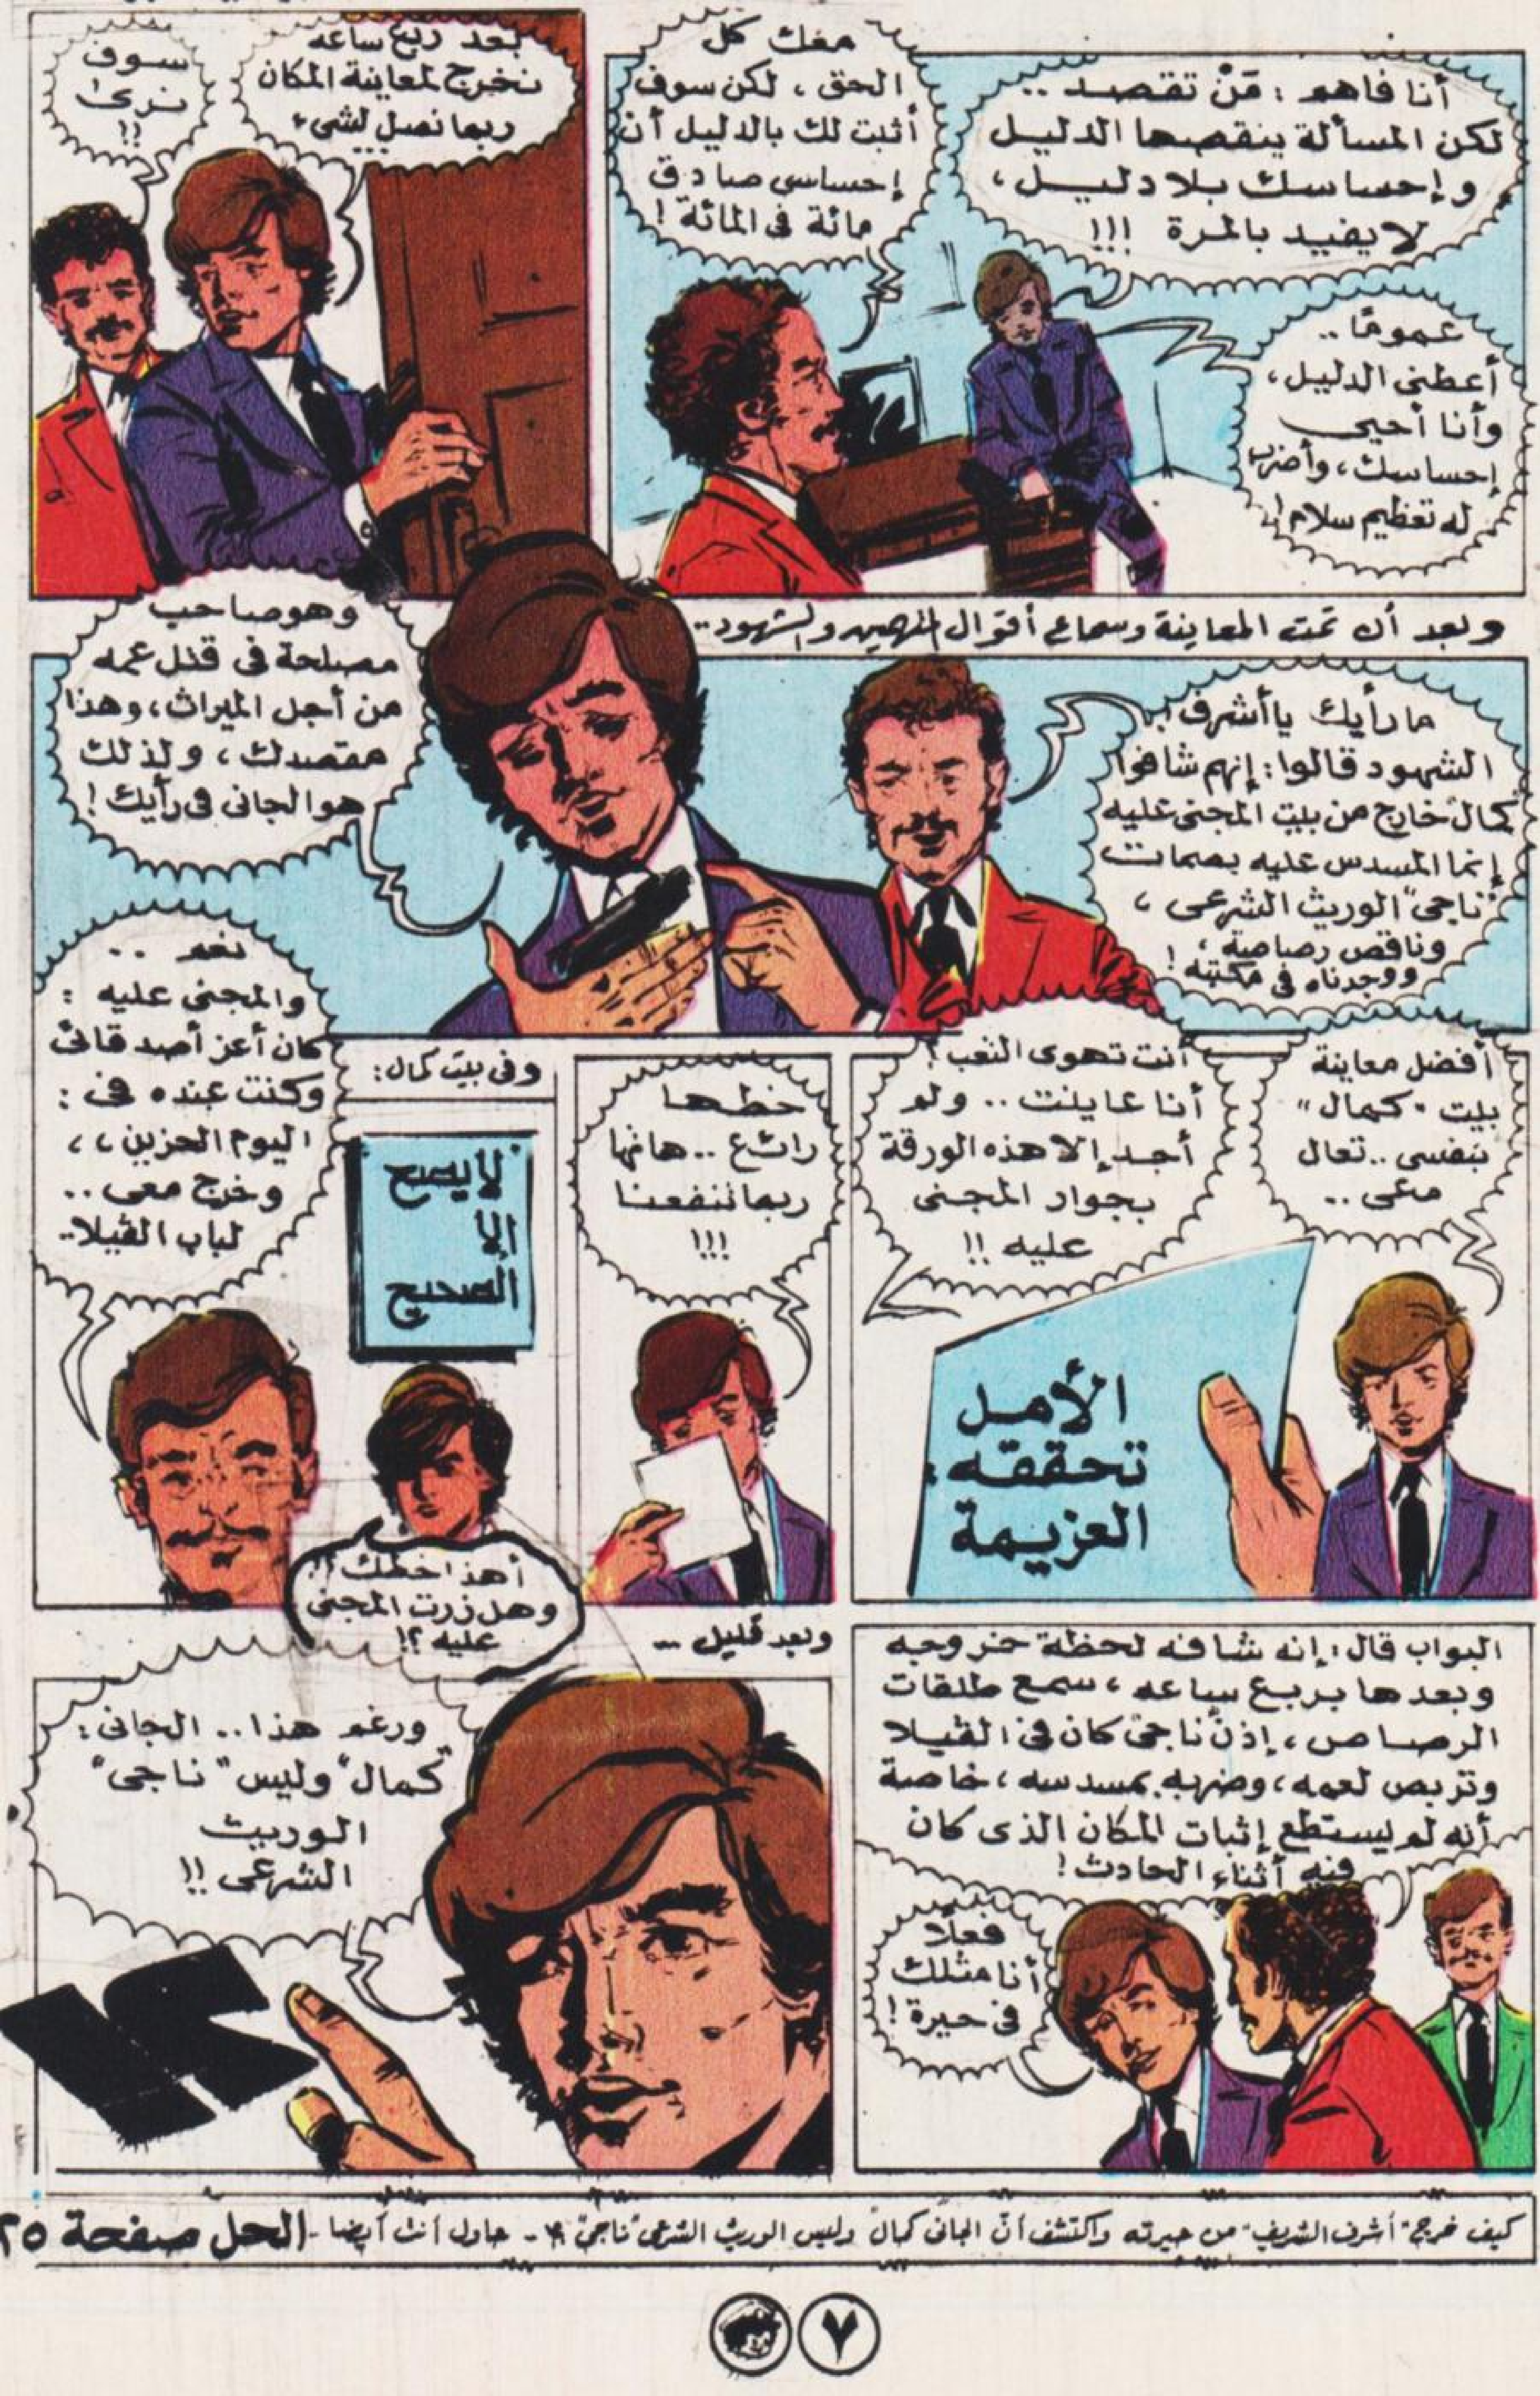 أنا فاهم : مَنْ تقصد ..
لكن المسألة ينقصها الدليل
وإحساسك بلا دليل ،
لا يفيد بالمرة !!!
معك كل
الحق ، لكن سوف
أثبت لك بالدليل أن
إحساسى صادق
مائة فى المائة !
عمومًا ..
أعطنى الدليل ،
وأنا أحيى
إحساسك ، وأضرب
له تعظيم سلام !
بعد ربع ساعه
نخرج لمعاينة المكان
ربما نصل لشىء
سوف
نرى
!!
وبعد أن تمت المعاينة وسماع أقوال المتهمين والشهود ..
ما رأيك يا أشرف ؟
الشهود قالوا : إنهم شافوا
كمال خارج من بيت المجنى عليه
إنما المسدس عليه بصمات
"ناجى" الوريث الشرعى ،
وناقص رصاصة ،
ووجدناه فى مكتبه !
وهو صاحب
مصلحة فى قتل عمه
من أجل الميراث ، وهذا
مقصدك ، ولذلك
هو الجانى فى رأيك !
أفضل معاينة
بيت "كمال"
بنفسى .. تعال
معى ..
أنت تهوى التعب !
أنا عاينت .. ولم
أجد إلا هذه الورقة
بجوار المجنى
عليه !!
الأمل
تحققه
العزيمة
خطها
رائع .. هاتها
ربما تنفعنا
!!!
وفى بيت كمال :
لا يصح
إلا
الصحيح
أهذا خطك ؟!
وهل زرت المجنى
عليه ؟!
نعم ..
والمجنى عليه :
كان أعز أصدقائى
وكنت عنده فى :
اليوم الحزين ،،
وخرج معى ..
لباب الڤيلا ..
البواب قال : إنه شافه لحظة خروجه
وبعدها بربع ساعه ، سمع طلقات
الرصاص ، إذن ناجى كان فى الڤيلا
وتربص لعمه ، وضربه بمسدسه ، خاصة
أنه لم يستطع إثبات المكان الذى كان
فيه أثناء الحادث !
فعلًا
أنا مثلك
فى حيرة !
وبعد قليل ...
ورغم هذا .. الجانى :
"كمال" وليس "ناجى"
الوريث
الشرعى !!
كيف خرج "أشرف الشريف" من حيرته واكتشف أن الجانى كمال وليس الوريث الشرعى "ناجى" ؟! - حاول أنت أيضا - الحل صفحة ٢٥
٧